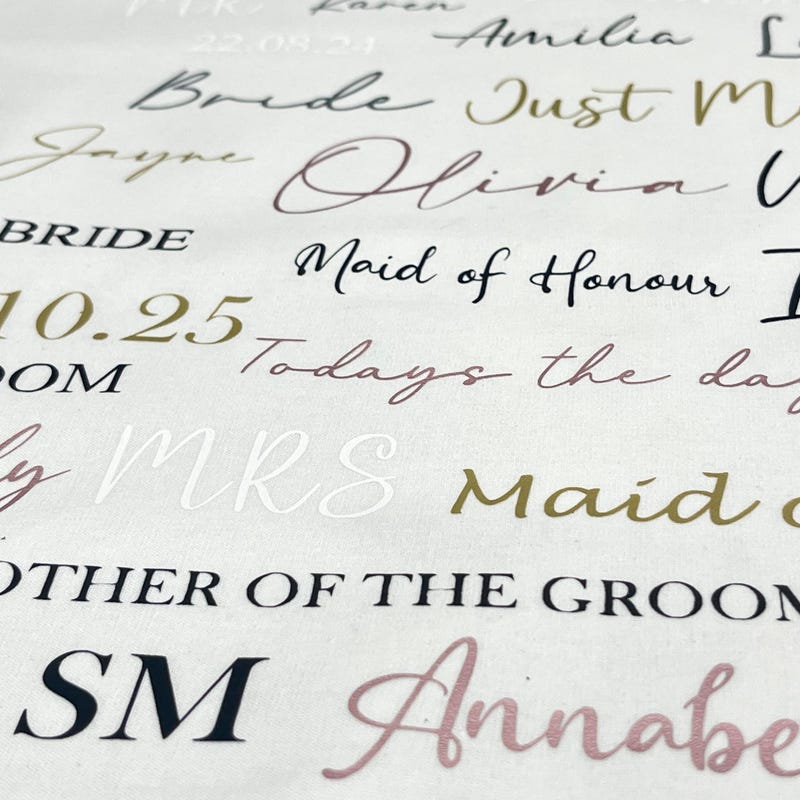 MRS Karen
22.08.24 Amilia
Bride Just M
Jayne Olivia
BRIDE Maid of Honour
10.25 Todays the day
OOM
ly MRS Maid o
OTHER OF THE GROOM
SM Annabe